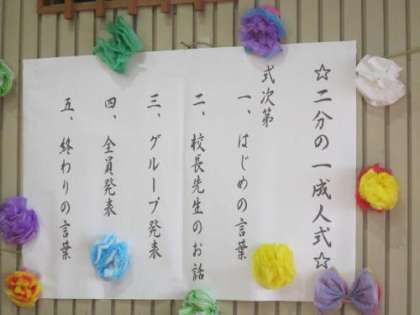 ☆二分の一成人式☆
式次第
一、はじめの言葉
二、校長先生のお話
三、グループ発表
四、全員発表
五、終わりの言葉